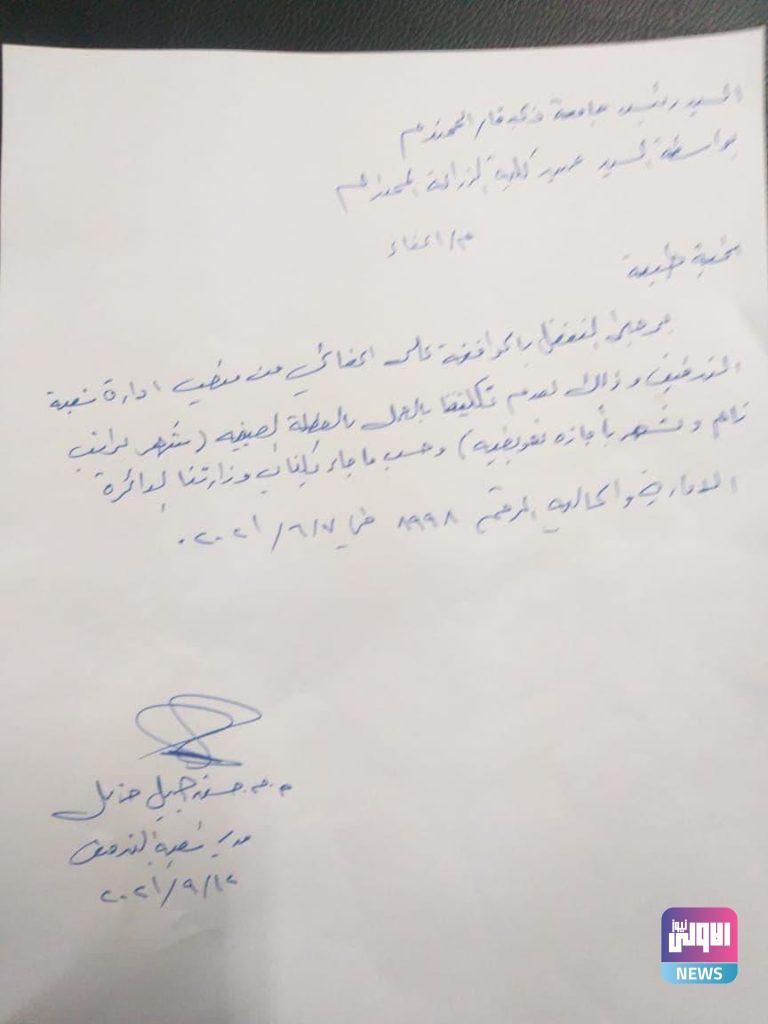 السيد رئيس جامعة ذي قار المحترم
بواسطة السيد عميد كلية الزراعة المحترم
م/ اعفاء
تحية طيبة
يرجى التفضل بالموافقة على اعفائي من منصب ادارة شعبة
التدقيق وذلك لعدم تكليفنا بالعمل بالعطلة الصيفيه (شهر براتب
تام وشهر بأجازه تعويضيه) وحسب ما جاء بكتاب وزارتنا الدائرة
الادارية والماليه المرقم ٨٩٩٨ في ٢٠٢١/٦/٧ .
م.م. حسن جميل
مدير شعبة التدقيق
٢٠٢١/٩/١٢
الاولى نيوز
NEWS